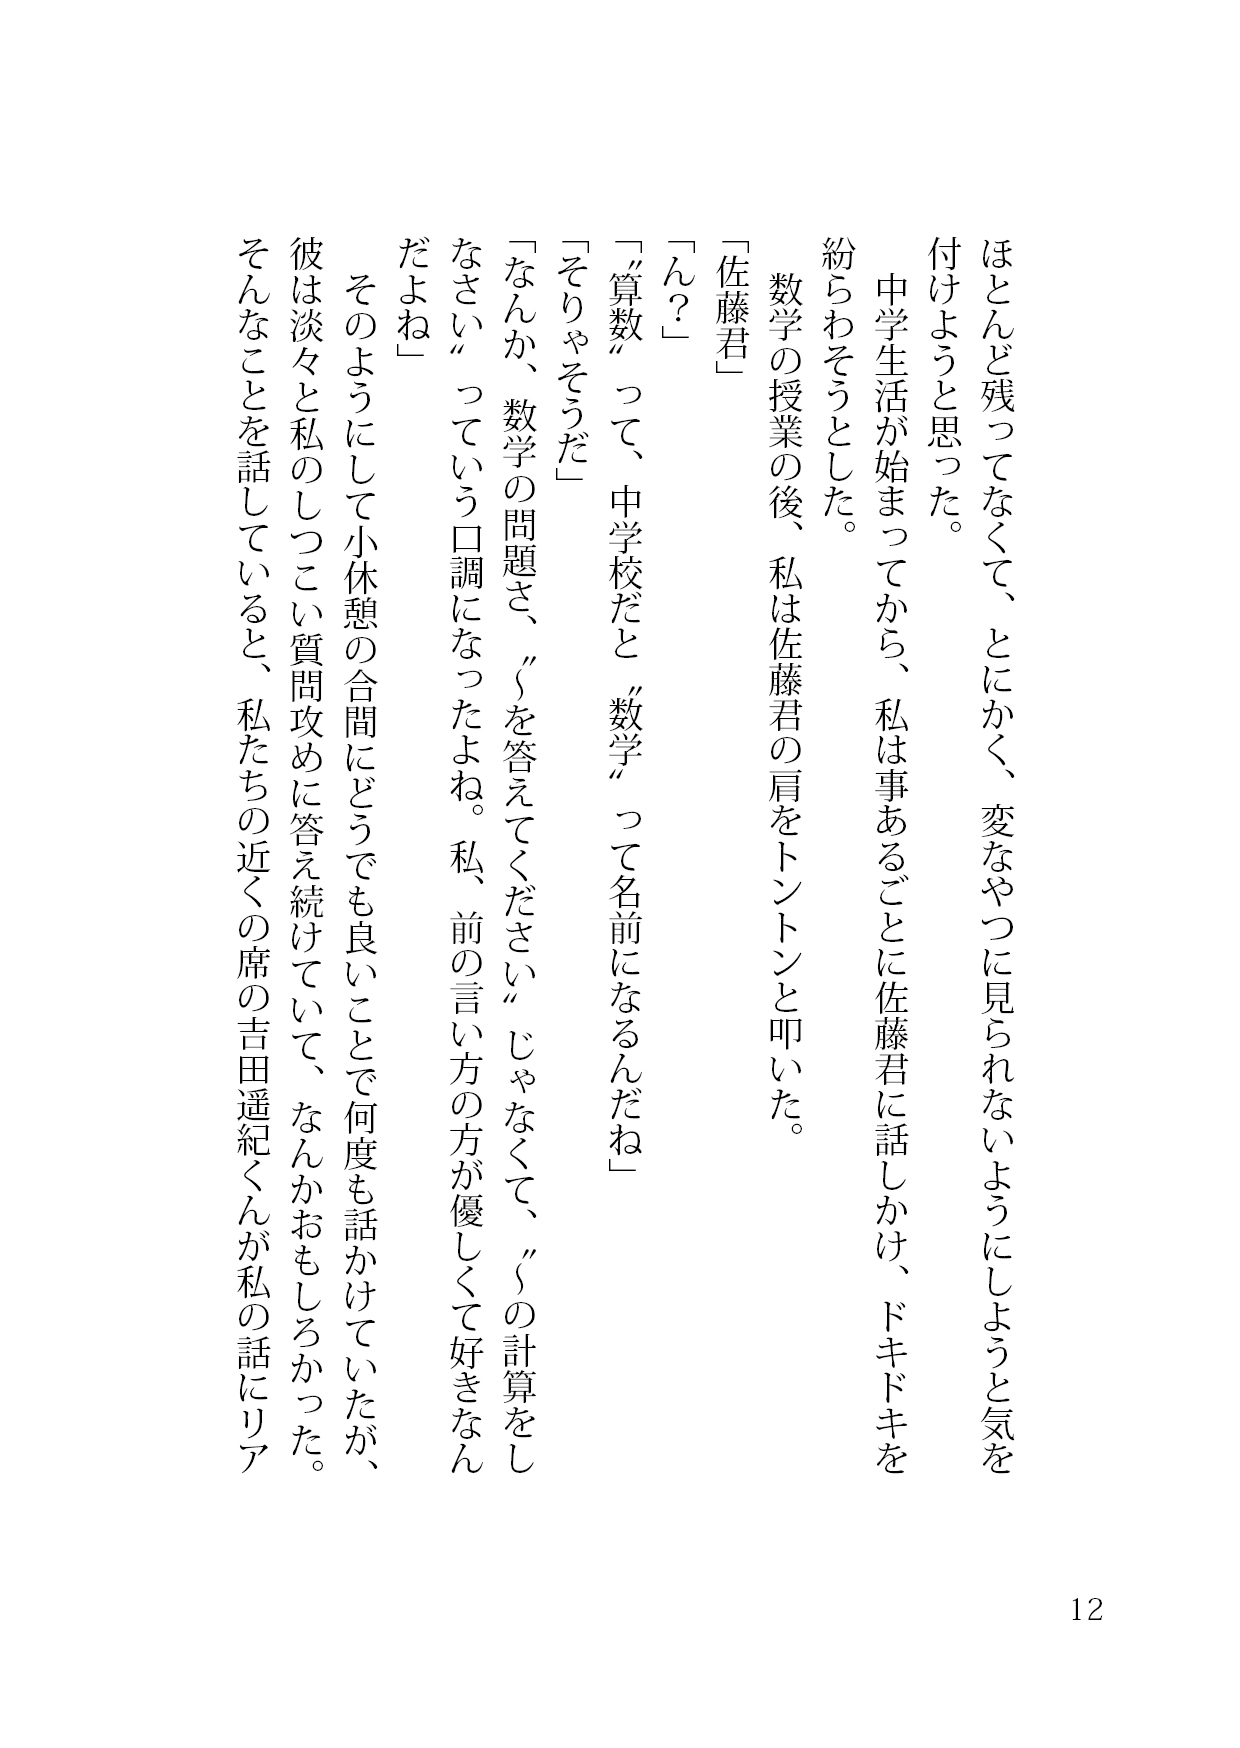 ほとんど残ってなくて、とにかく、変なやつに見られないようにしようと気を
付けようと思った。
　中学生活が始まってから、私は事あるごとに佐藤君に話しかけ、ドキドキを
紛らわそうとした。
　数学の授業の後、私は佐藤君の肩をトントンと叩いた。
「佐藤君」
「ん？」
「〝算数〟って、中学校だと〝数学〟って名前になるんだね」
「そりゃそうだ」
「なんか、数学の問題さ、〝～を答えてください〟じゃなくて、〝～の計算をし
なさい〟っていう口調になったよね。私、前の言い方の方が優しくて好きなん
だよね」
　そのようにして小休憩の合間にどうでも良いことで何度も話かけていたが、
彼は淡々と私のしつこい質問攻めに答え続けていて、なんかおもしろかった。
そんなことを話していると、私たちの近くの席の吉田遥紀くんが私の話にリア
12